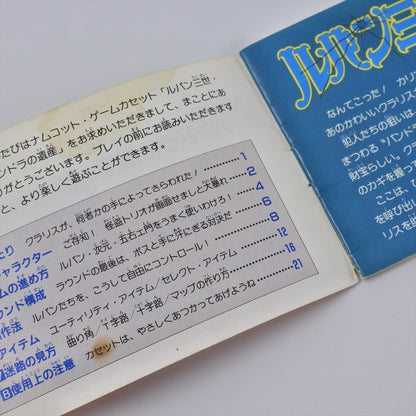 たびはナムコット・ゲームカセット「ルパン三世・
ンドラの遺産」をお求めいただきまして、まことにあ
がとうございます。プレイの前にお読みいただきます
と、より楽しく遊ぶことができます。
クラリスが、何者かの手によってさらわれた! 1
キャラクター ご存知! 怪盗トリオが画面せましと大暴れ 2
ムの進め方 ルパン・次元・五右ェ門をうまく使いわけろ! 4
ウンド構成 ラウンドの最後は、ボスと手に汗にぎる対決だ 6
作法 ルパンたちを、こうして自由にコントロール! 8
アイテム ユーティリティ・アイテム/セレクト・アイテム 12
迷路の見方 曲り角/十字路/T字路/マップの作り方 16
8使用上の注意 カセットは、やさしくあつかってあげようね 21
ルパン三
なんてこった! カリ
あのかわいいクラリス
犯人たちの狙いは、
まつわる “パン
財宝らしい。クラ
のカギを握って
け出し
を呼び出し
リスを